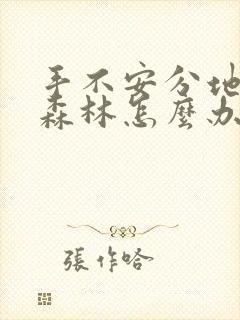 手不安分地
森林怎麼办
張作哈